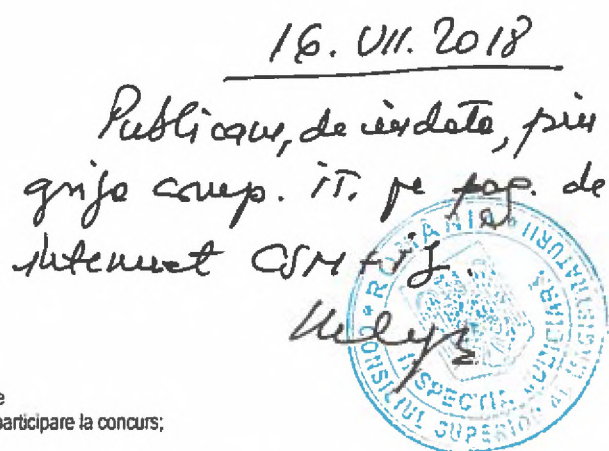 16. VII. 2018
Publicare, de îndată, prin
grija comp. IT. pe pag. de
internet CSM + IJ.
ROMÂNIA
CONSILIUL SUPERIOR AL MAGISTRATURII
INSPECȚIA JUDICIARĂ
e
participare la concurs;